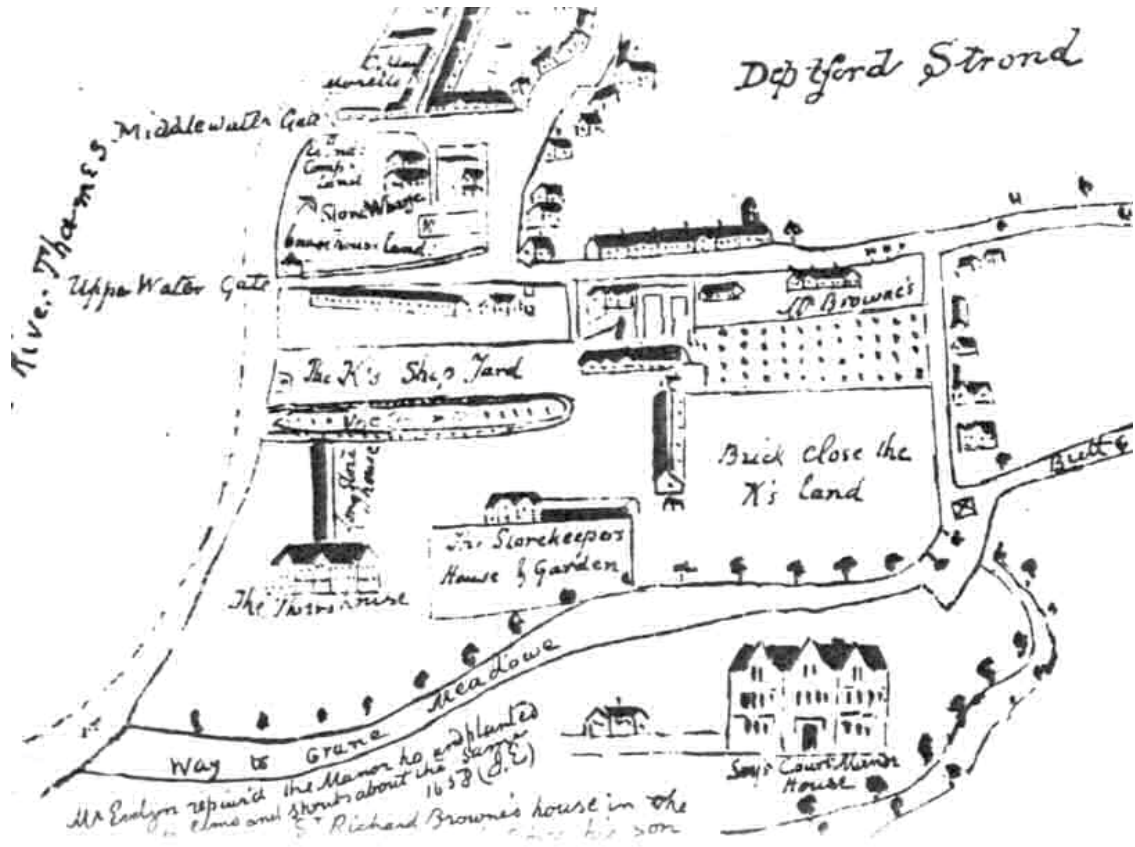 Deptford Strond
River. Thames.
Middlewater Gate
Land
Store Wharfe
house land
Upper Water Gate
Sr. Browne's
The K's Ship Yard
Long Store
house
Brick close the
K's land
Brett
The Storekeepers
House & Garden
The
Way to Crane Meadowe
Says Court Manor
House
Mr Evelyn repair'd the Manor ho and planted
elms and about the same
1658 (J.E)
Sr Richard Browne's house in the
son